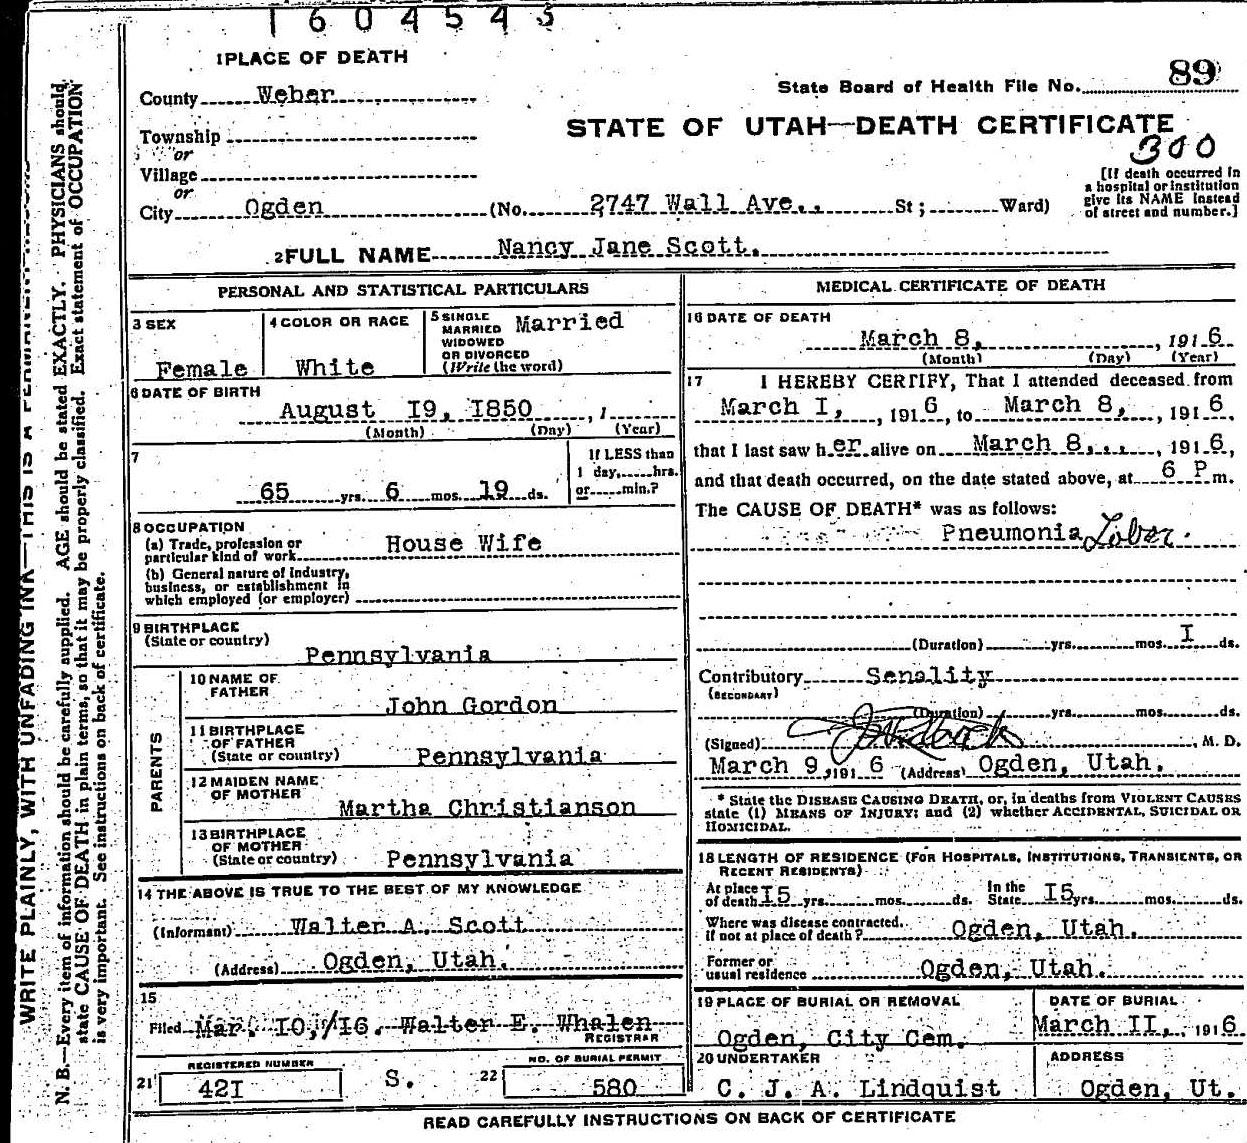 1604543
1 PLACE OF DEATH
County Weber
State Board of Health File No. 89
Township
or
STATE OF UTAH—DEATH CERTIFICATE
300
Village
or
[If death occurred in
a hospital or institution
give its NAME instead
of street and number.]
City Ogden (No. 2747 Wall Ave., St; Ward)
2 FULL NAME Nancy Jane Scott.
PERSONAL AND STATISTICAL PARTICULARS
3 SEX
Female
4 COLOR OR RACE
White
5 SINGLE
MARRIED
WIDOWED
OR DIVORCED
(Write the word)
Married
6 DATE OF BIRTH
August I9, I850, 1
(Month) (Day) (Year)
7
65 yrs. 6 mos. I9 ds.
If LESS than
1 day, hrs.
or min.?
8 OCCUPATION
(a) Trade, profession or
particular kind of work House Wife
(b) General nature of industry,
business, or establishment in
which employed (or employer)
9 BIRTHPLACE
(State or country)
Pennsylvania
PARENTS
10 NAME OF
FATHER
John Gordon
11 BIRTHPLACE
OF FATHER
(State or country) Pennsylvania
12 MAIDEN NAME
OF MOTHER
Martha Christianson
13 BIRTHPLACE
OF MOTHER
(State or country) Pennsylvania
14 THE ABOVE IS TRUE TO THE BEST OF MY KNOWLEDGE
(Informant) Walter A. Scott
(Address) Ogden, Utah.
15
Filed Mar. IO, /I6. Walter E. Whalen
REGISTRAR
REGISTERED NUMBER
21 42I S.
NO. OF BURIAL PERMIT
22 580
MEDICAL CERTIFICATE OF DEATH
16 DATE OF DEATH
March 8, 1916
(Month) (Day) (Year)
17 I HEREBY CERTIFY, That I attended deceased from
March I, 1916, to March 8, 1916
that I last saw her alive on March 8, 1916,
and that death occurred, on the date stated above, at 6 P m.
The CAUSE OF DEATH* was as follows:
Pneumonia Lobar.
(Duration) yrs. mos. I ds.
Contributory Senality
(SECONDARY)
(Duration) yrs. mos. ds.
(Signed) , M. D.
March 9, 1916 (Address) Ogden, Utah.
* State the DISEASE CAUSING DEATH, or, in deaths from VIOLENT CAUSES
state (1) MEANS OF INJURY; and (2) whether ACCIDENTAL, SUICIDAL OR
HOMICIDAL.
18 LENGTH OF RESIDENCE (FOR HOSPITALS, INSTITUTIONS, TRANSIENTS, OR
RECENT RESIDENTS)
At place
of death I5 yrs. mos. ds.
In the
State I5 yrs. mos. ds.
Where was disease contracted,
if not at place of death? Ogden, Utah.
Former or
usual residence Ogden, Utah.
19 PLACE OF BURIAL OR REMOVAL
Ogden, City Cem.
DATE OF BURIAL
March II, 1916
20 UNDERTAKER
C. J. A. Lindquist
ADDRESS
Ogden, Ut.
READ CAREFULLY INSTRUCTIONS ON BACK OF CERTIFICATE
WRITE PLAINLY, WITH UNFADING INK—THIS IS A PERMANENT RECORD
N. B.—Every item of information should be carefully supplied. AGE should be stated EXACTLY. PHYSICIANS should
state CAUSE OF DEATH in plain terms, so that it may be properly classified. Exact statement of OCCUPATION
is very important. See instructions on back of certificate.